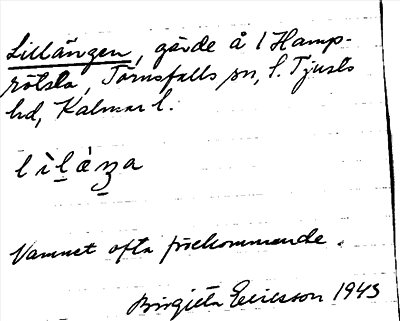 Lillängen, gärde å 1 Hamp-
rötsla, Törnsfalls sn, S. Tjusts
hd, Kalmar l.
Namnet ofta förekommande.
Birgitta Ericsson 1943